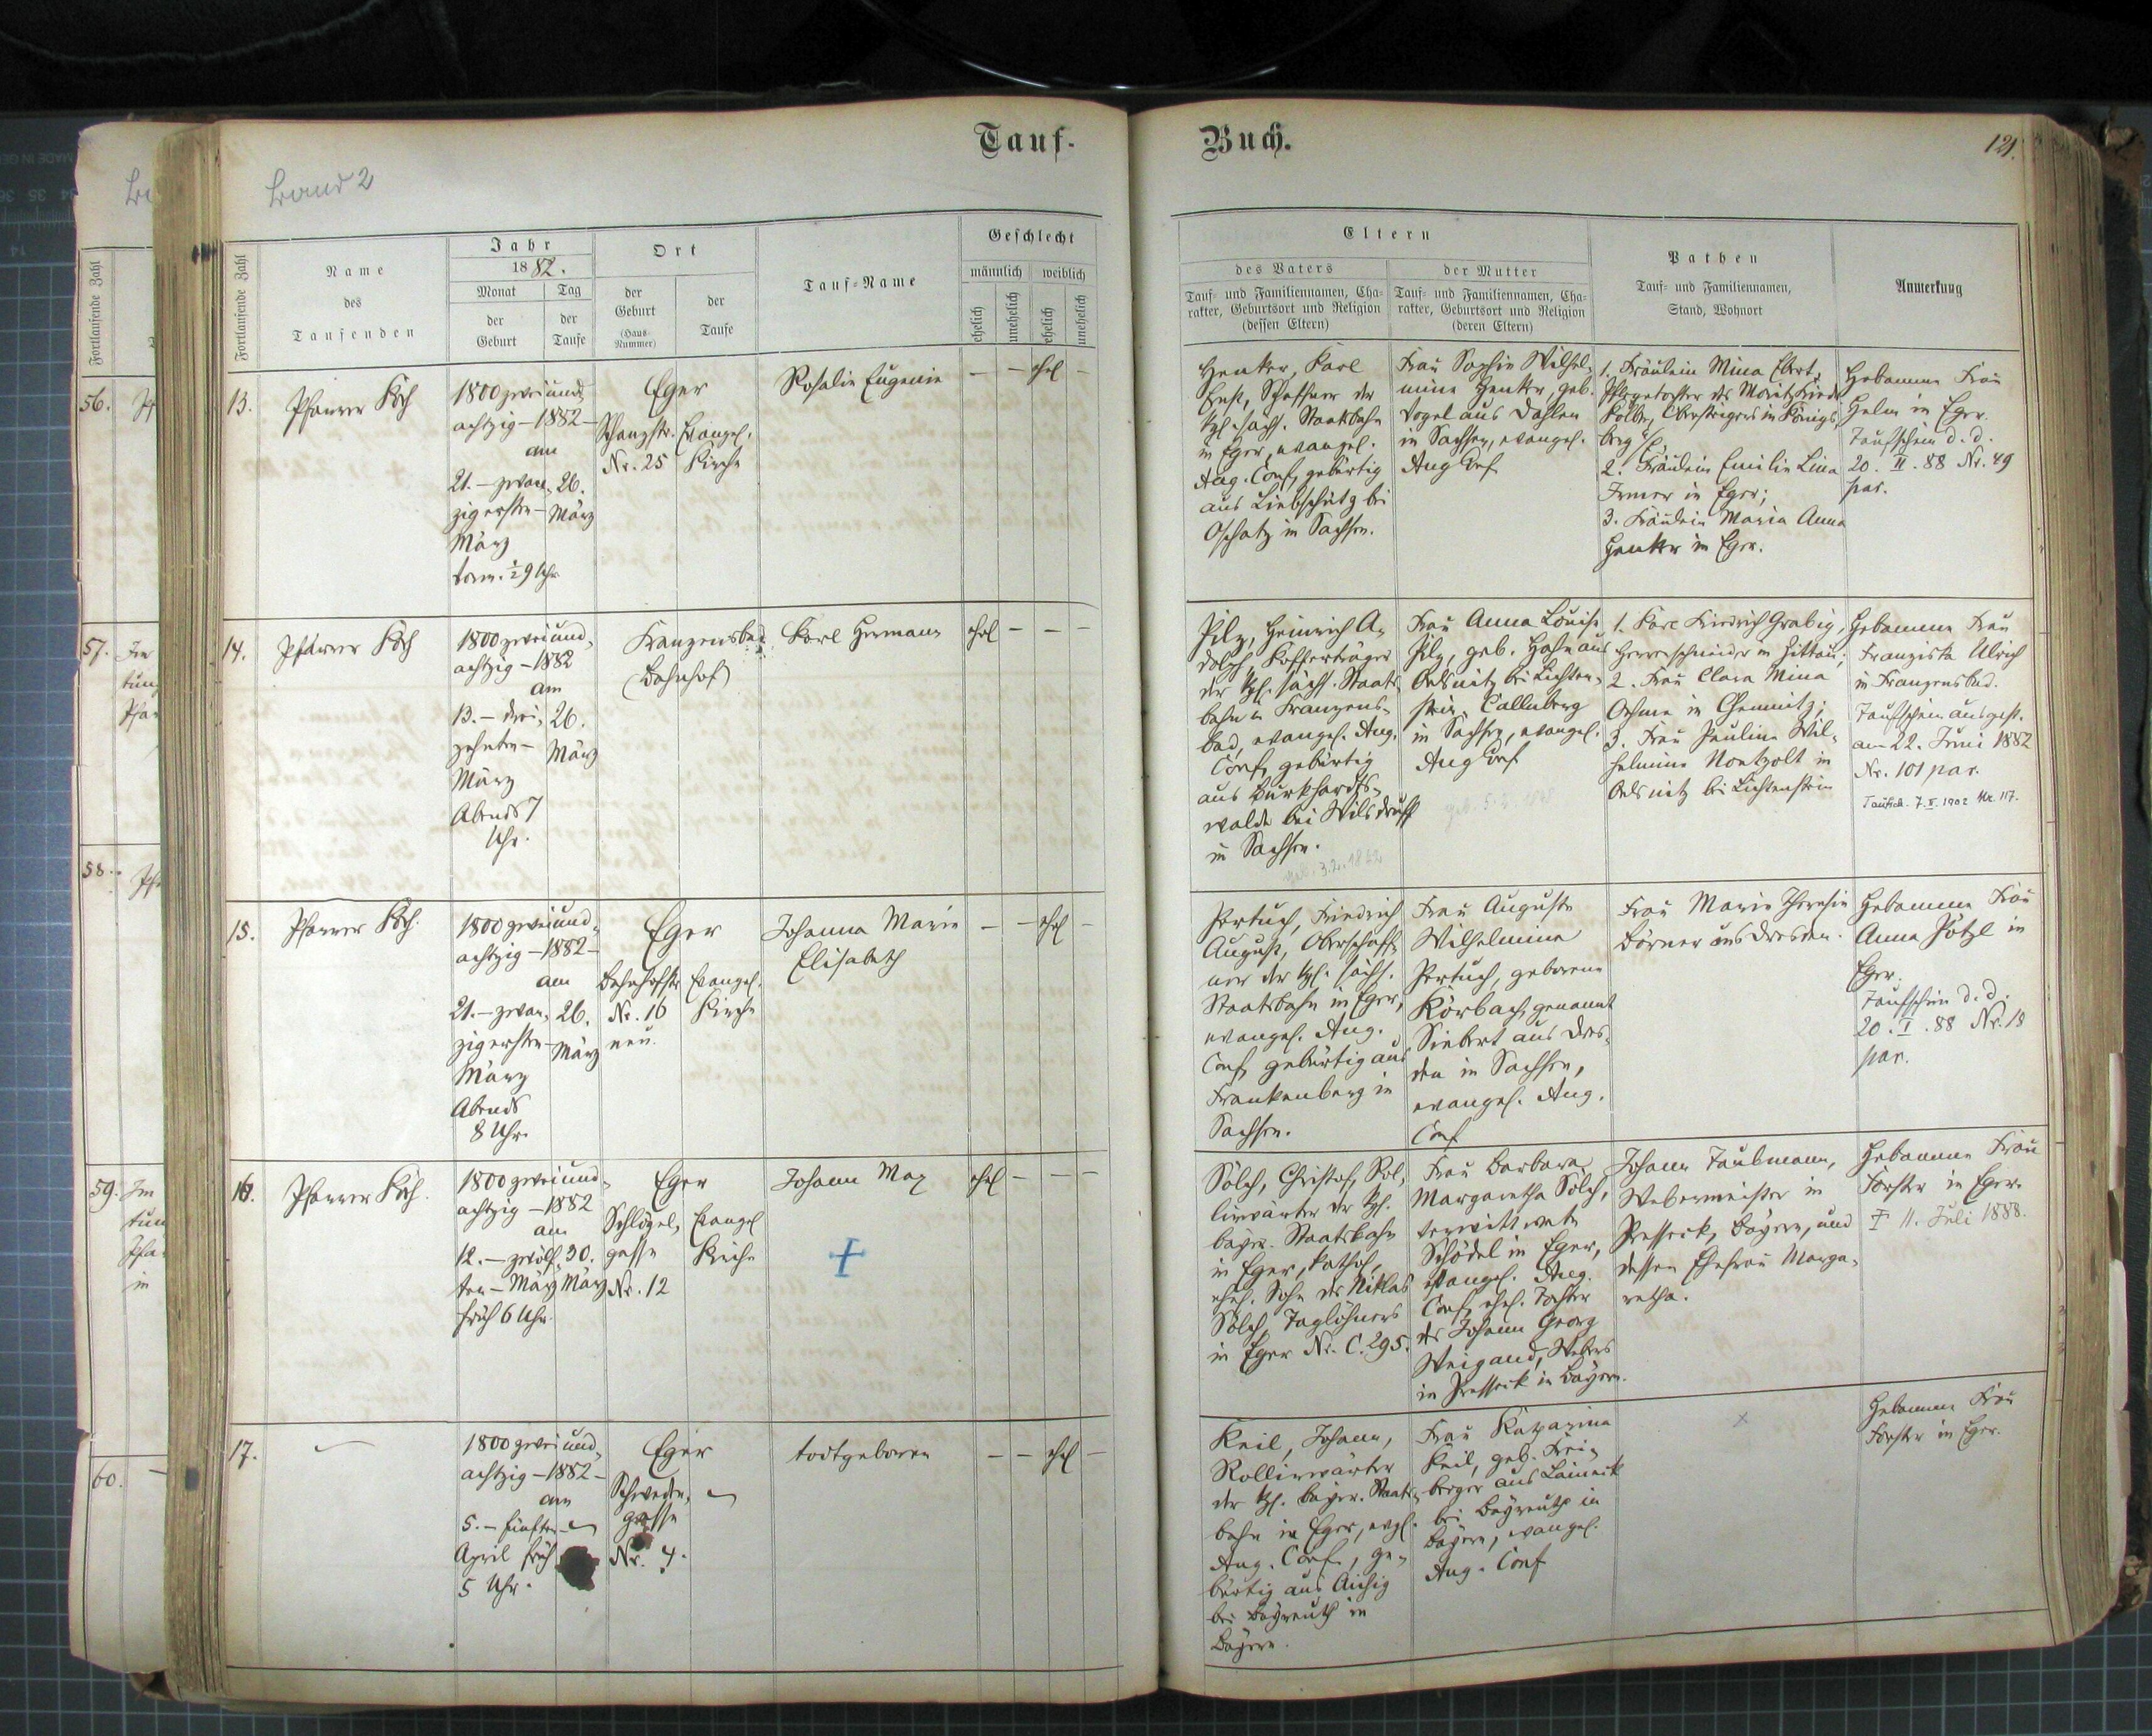 Tauf-
Buch.
121.
Band 2
Fortlaufende Zahl
Name
des
Taufenden
Jahr
1882.
Monat
der
Geburt
Tag
der
Taufe
Ort
der
Geburt
(Haus-
Nummer)
der
Taufe
Tauf-Name
Geschlecht
männlich
weiblich
ehelich
unehelich
ehelich
unehelich
Eltern
des Vaters
Tauf- und Familiennamen, Cha-
rakter, Geburtsort und Religion
(dessen Eltern)
der Mutter
Tauf- und Familiennamen, Cha-
rakter, Geburtsort und Religion
(deren Eltern)
Pathen
Tauf- und Familiennamen,
Stand, Wohnort
Anmerkung
13.
Pfarrer Koch
1800 zwei und
achtzig – 1882 –
am
21. – zwan-
zigersten –
März
Vorm. ½ 9 Uhr
26.
März
Eger
Schanzstr.
Nr. 25
Evangel.
Kirche
Rosalie Eugenie
– – ehel –
Henker, Karl
Ernst, Schaffner der
kgl. sächs. Staatsbahn
in Eger, evangel.
Aug. Conf, gebürtig
aus Liebschütz bei
Oschatz in Sachsen.
Frau Sophie Wilhel-
mine Henker, geb.
Vogel aus Dahlen
in Sachsen, evangel.
Aug Conf
1. Fräulein Mina Ebert,
Pflegetochter des Moritz
Kolbe, Obersteigers in Königs-
berg
2. Fräulein Emilie Lina
Irmer in Eger;
3. Fräulein Maria Anna
Henker in Eger.
Hebamme Frau
Helm in Eger.
Taufschein d. d.
20. II. 88 Nr. 49
par.
14.
Pfarrer Koch
1800 zwei und
achtzig – 1882
am
13. – drei-
zehnten –
März
Abends 7
Uhr.
26.
März
Franzensbad
(Bahnhof)
Karl Hermann
ehel – – –
Pilz, Heinrich A-
dolph, Kofferträger
der kgl. sächs. Staats
bahn in Franzens-
bad, evangel. Aug.
Conf, gebürtig
aus Burkhards-
walde bei Wilsdruff
in Sachsen.
geb. 3.2.1842
Frau Anna Louise
Pilz, geb. Hahn aus
Oelsnitz bei Lichten-
stein Callnberg
in Sachsen, evangel.
Aug Conf
1. Karl Friedrich Grabig,
Herrenschneider in Zittau;
2. Frau Clara Mina
Oehme in Chemnitz;
3. Frau Pauline Wil-
helmine in
Oelsnitz bei Lichtenstein
Hebamme Frau
Franziska Ulrich
in Franzensbad.
Taufschein ausgest.
am 22. Juni 1882
Nr. 101 par.
Taufsch. 7. II. 1902 Nr. 117.
15.
Pfarrer Koch.
1800 zwei und
achtzig – 1882 –
am
21. – zwan-
zigersten –
März
Abends
8 Uhr.
26.
März
Eger
Bahnhofstr
Nr. 16
neu.
Evangel.
Kirche
Johanna Marie
Elisabeth
– – ehel –
Pertuch, Friedrich
August, Oberschaff-
ner der kgl. sächs.
Staatsbahn in Eger,
evangel. Aug.
Conf, gebürtig aus
Frankenberg in
Sachsen.
Frau Auguste
Wilhelmine
Pertuch, geborene
Körbach, genannt
Siebert aus Dres-
den in Sachsen,
evangel. Aug.
Conf
Frau Marie Theresie
Börner aus Dresden.
Hebamme Frau
Anna Pötzl in
Eger.
Taufschein d. d.
20. I. 88 Nr. 18
par.
16.
Pfarrer Koch.
1800 zwei und
achtzig – 1882
am
12. – zwölf-
ten – März
früh 6 Uhr.
30.
März
Eger
Schlögel-
gasse
Nr. 12
Evangel
Kirche
Johann Max
+
ehel – – –
Sölch, Christof, Rol-
lirwärter der kgl.
bayr. Staatsbahn
in Eger, kathol,
ehel. Sohn des Niklas
Sölch, Taglöhners
in Eger Nr. C. 295.
Frau Barbara
Margaretha Sölch,
verwittwete
Schödel in Eger,
evangel. Aug.
Conf, ehel. Tochter
des Johann Georg
Weigand, Webers
in Presseck in Bayern.
Johann Taubmann,
Webermeister in
Presseck, Bayern, und
dessen Ehefrau Marga-
retha.
Hebamme Frau
Forster in Eger.
† 11. Juli 1888.
17.
1800 zwei und
achtzig – 1882 –
am
5. – fünften –
April früh
5 Uhr.
Eger
Schweden-
gasse
Nr. 4.
todtgeboren
– – ehel –
Keil, Johann,
Rollirwärter
der kgl. bayer. Staats-
bahn in Eger, evgl.
Aug. Conf., ge-
bürtig aus Aichig
bei Bayreuth in
Bayern.
Frau Katharina
Keil, geb. Frei-
berger aus Laineck
bei Bayreuth in
Bayern, evangel.
Aug. Conf
x
Hebamme Frau
Forster in Eger.
56.
57.
58.
59.
60.